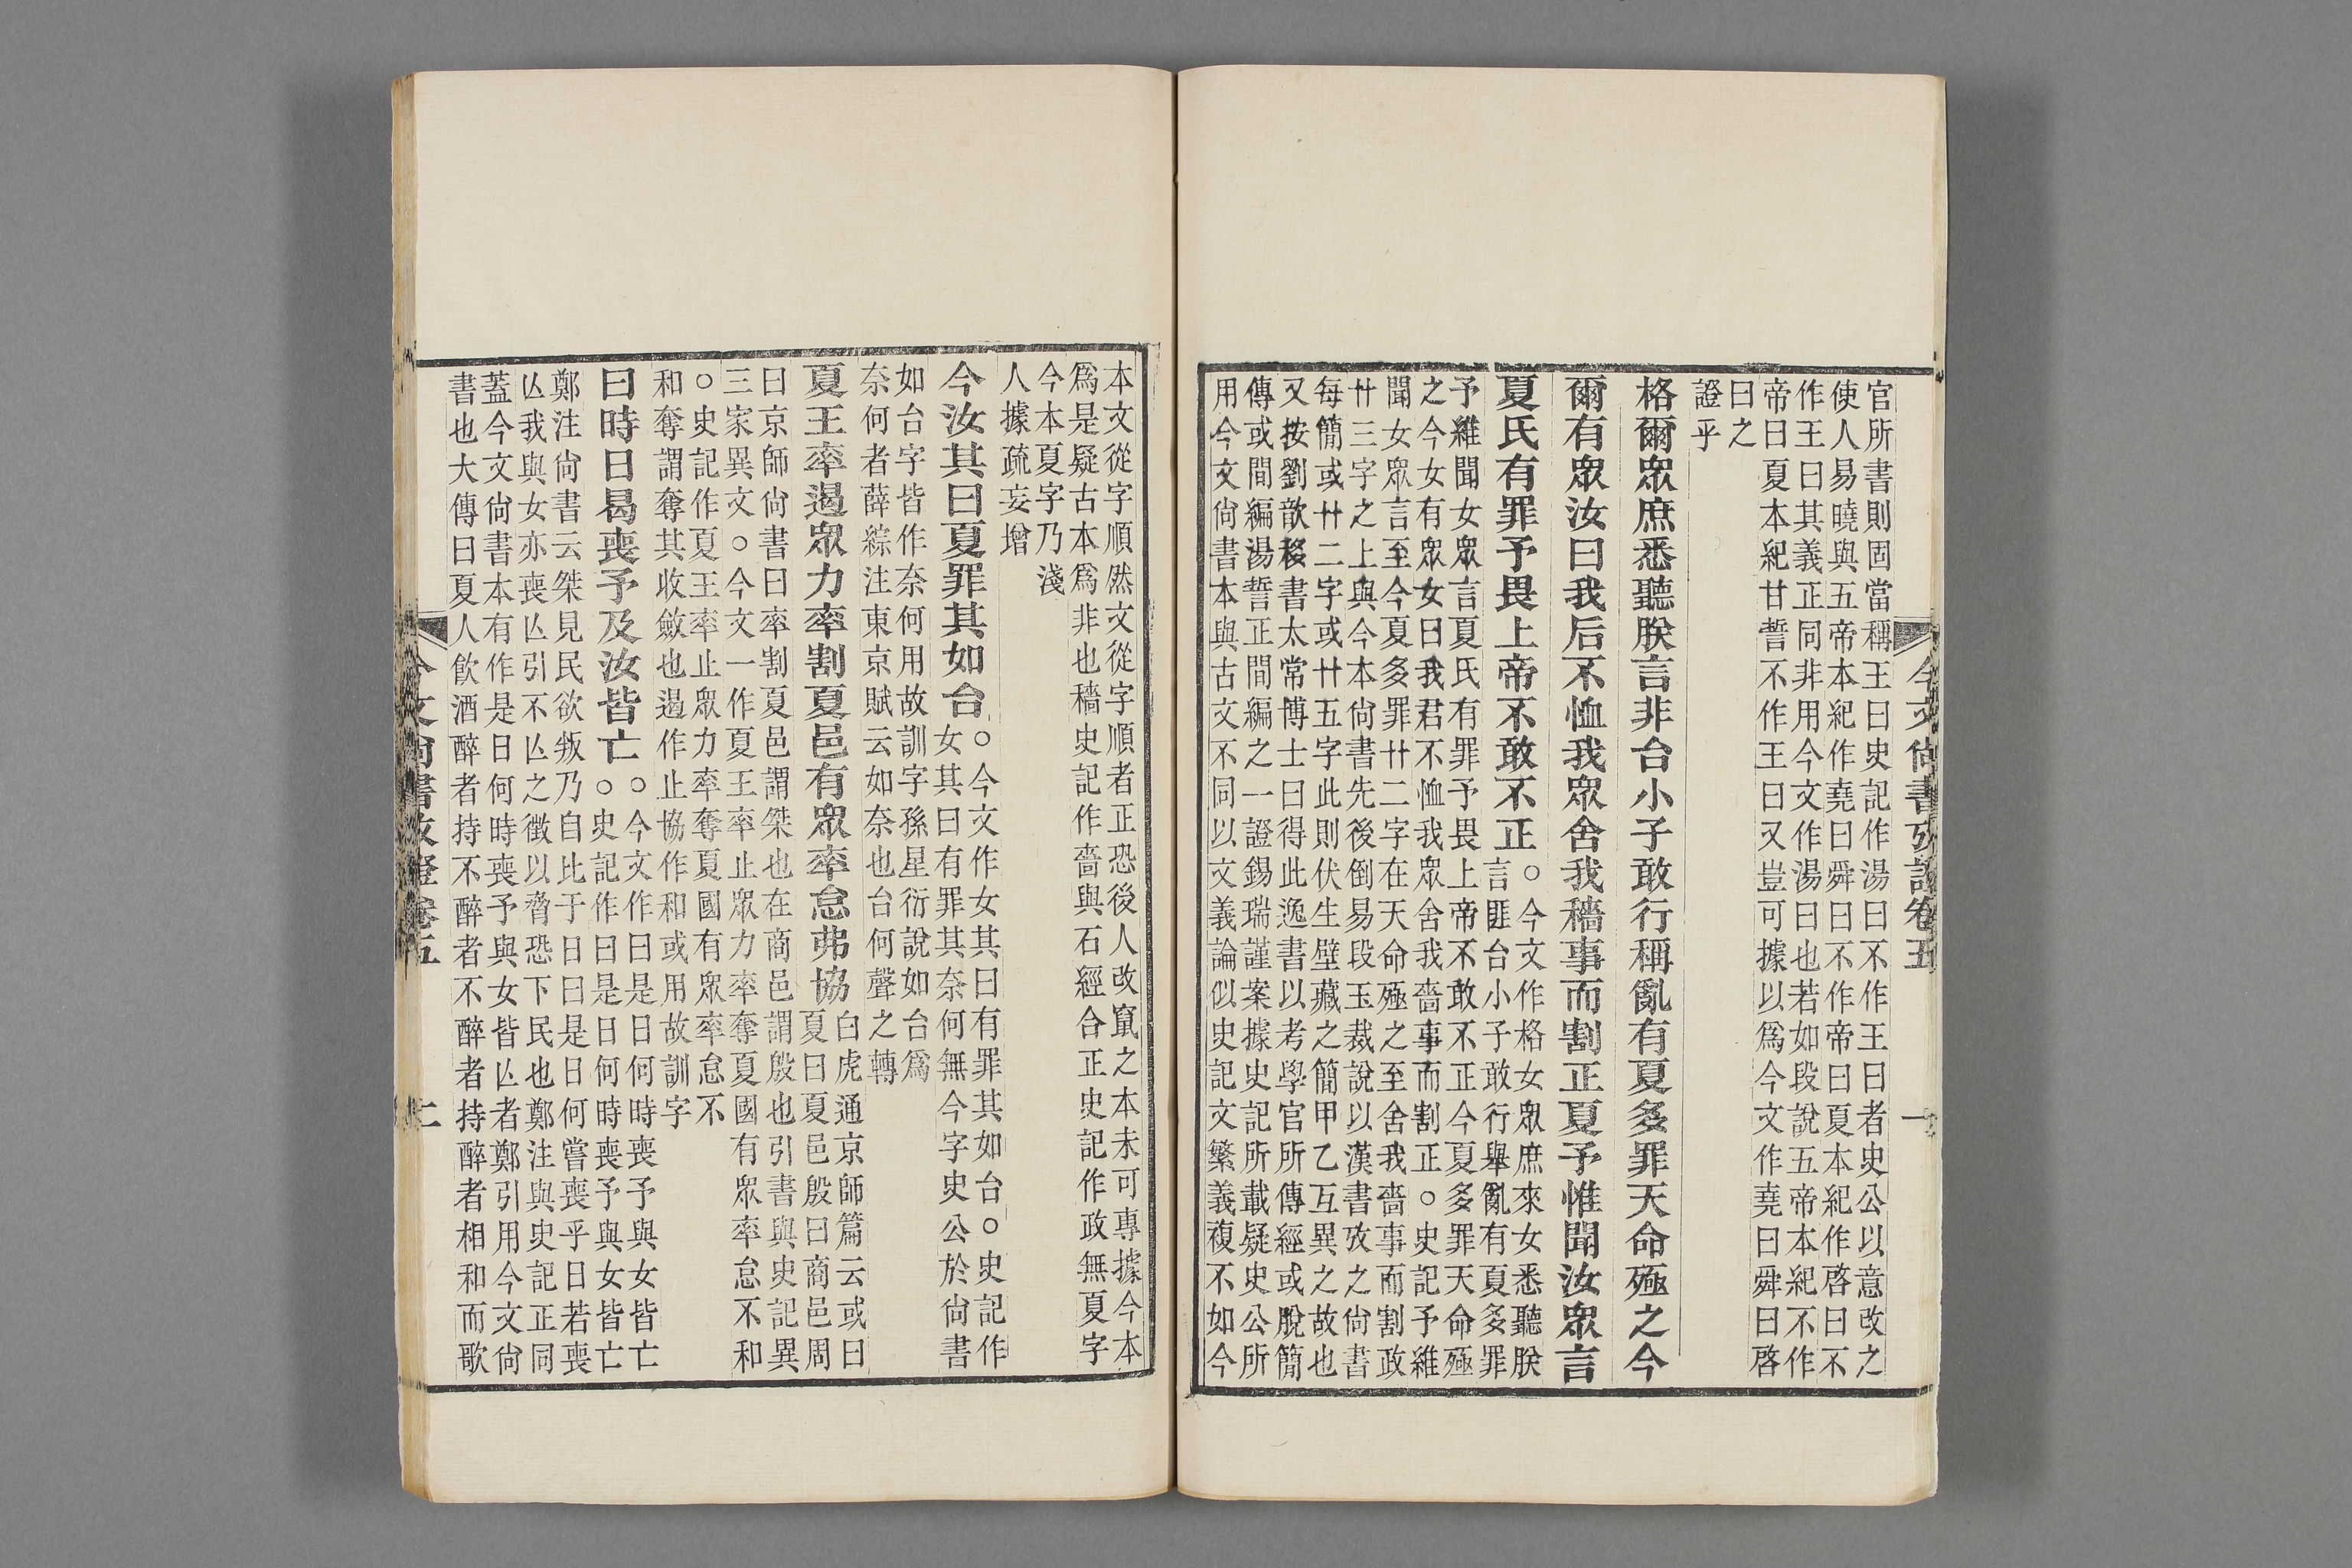 官所書則固當稱王曰史記作湯曰不作王曰者史公以意改之
使人易曉與五帝本紀作堯曰舜曰不作帝曰夏本紀作啓曰不
作王曰其義正同非用今文作湯曰也若如段說五帝本紀不作
帝曰夏本紀甘誓不作王曰又豈可據以爲今文作堯曰舜曰啓
曰之
證乎
格爾眾庶悉聽朕言非台小子敢行稱亂有夏多罪天命殛之今
爾有眾汝曰我后不恤我眾舍我穡事而割正夏予惟聞汝眾言
夏氏有罪予畏上帝不敢不正
○今文作格女眾庶來女悉聽朕
言匪台小子敢行舉亂有夏多罪
予維聞女眾言夏氏有罪予畏上帝不敢不正今夏多罪天命殛
之今女有眾女曰我君不恤我眾舍我嗇事而割正○史記予維
聞女眾言至今夏多罪廿二字在天命殛之至舍我嗇事而割政
廿三字之上與今本尙書先後倒易段玉裁說以漢書攷之尙書
每簡或廿二字或廿五字此則伏生壁藏之簡甲乙互異之故也
又按劉歆移書太常博士曰得此逸書以考學官所傳經或脫簡
傳或間編湯誓正間編之一證錫瑞謹案據史記所載疑史公所
用今文尙書本與古文不同以文義論似史記文繁義複不如今
今文尙書攷證卷五
一
本文從字順然文從字順者正恐後人改竄之本未可專據今本
爲是疑古本爲非也穡史記作嗇與石經合正史記作政無夏字
今本夏字乃淺
人據疏妄增
今汝其曰夏罪其如台
○今文作女其曰有罪其如台○史記作
女其曰有罪其奈何無今字史公於尙書
如台字皆作奈何用故訓字孫星衍說如台爲
奈何者薛綜注東京賦云如奈也台何聲之轉
夏王率遏眾力率割夏邑有眾率怠弗協
白虎通京師篇云或曰
夏曰夏邑殷曰商邑周
曰京師尙書曰率割夏邑謂桀也在商邑謂殷也引書與史記異
三家異文○今文一作夏王率止眾力率奪夏國有眾率怠不和
○史記作夏王率止眾力率奪夏國有眾率怠不
和奪謂奪其收斂也遏作止協作和或用故訓字
曰時日曷喪予及汝皆亡
○今文作曰是日何時喪予與女皆亡
○史記作曰是日何時喪予與女皆亡
鄭注尙書云桀見民欲叛乃自比于日曰是日何嘗喪乎日若喪
亾我與女亦喪亾引不亾之徵以脅恐下民也鄭注與史記正同
蓋今文尙書本有作是日何時喪予與女皆亾者鄭引用今文尙
書也大傳曰夏人飮酒醉者持不醉者不醉者持醉者相和而歌
今文尙書攷證卷五
二